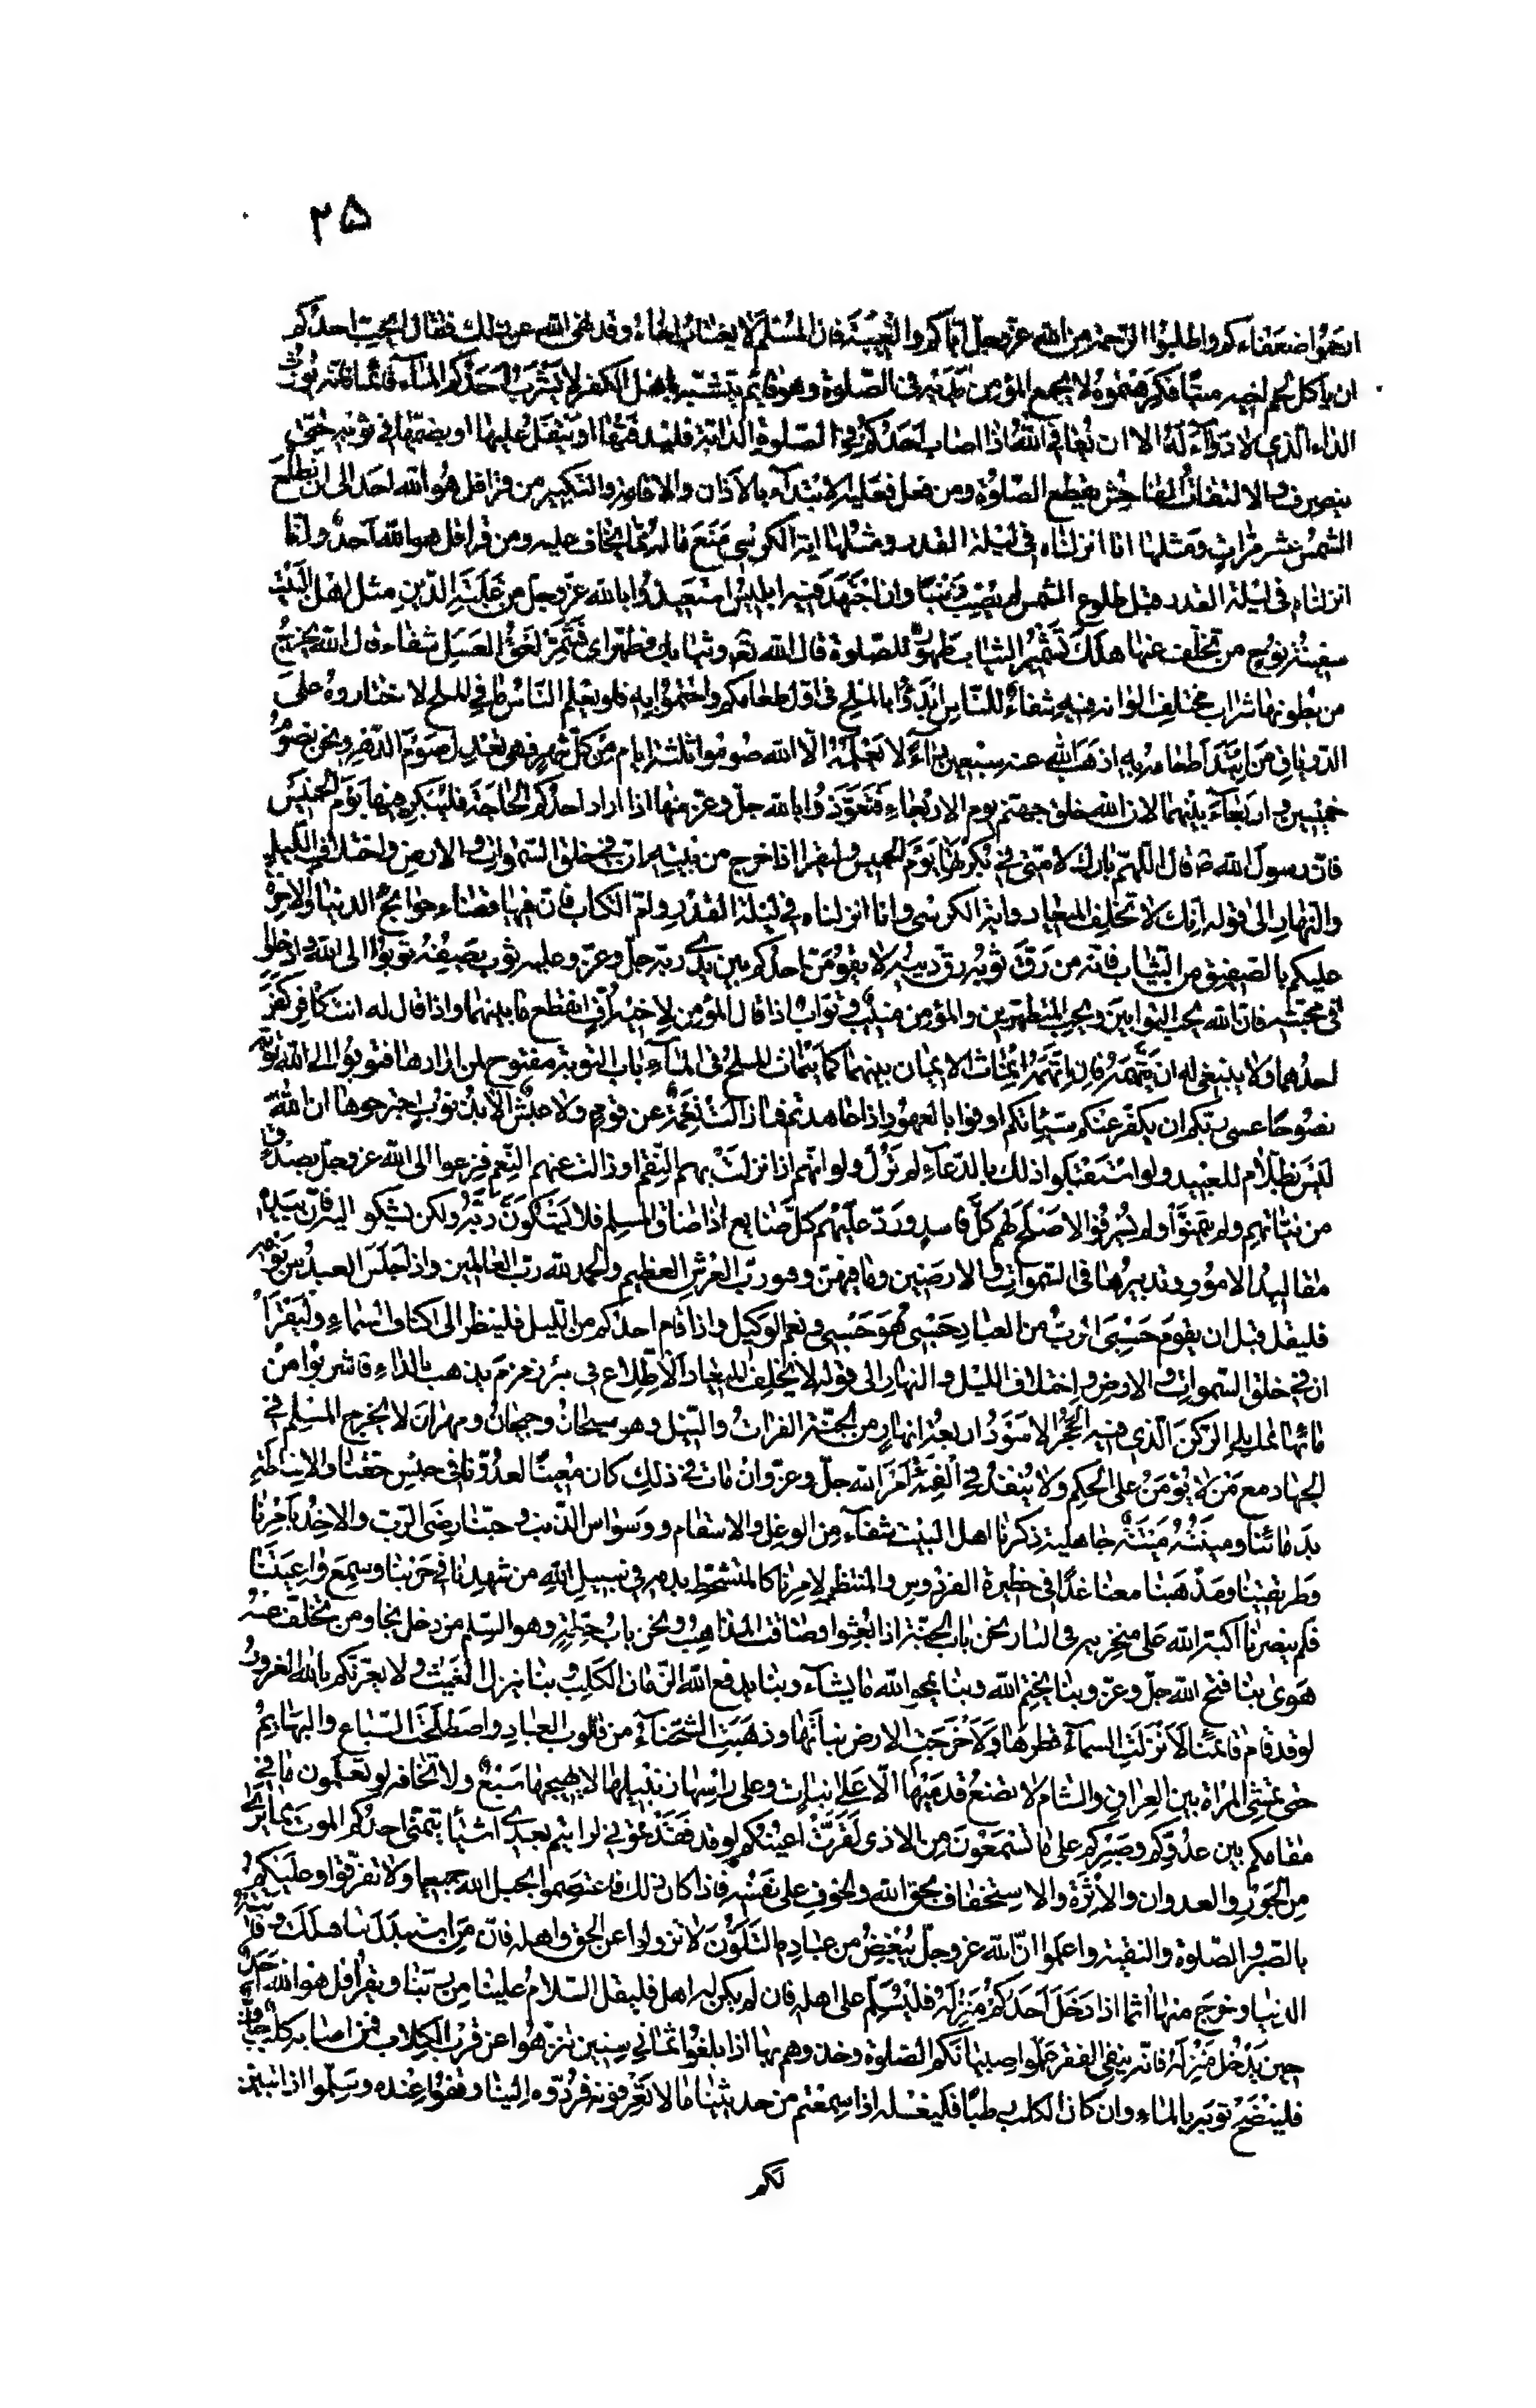 ٢۵
ارحموا ضعفاءكم واطلبوا الرحمة من الله عز وجل اياكم والغيبة فان المسلم لا يغتاب اخاه وقد نهى الله عن ذلك فقال ايحب احدكم
ان يأكل لحم اخيه ميتا فكرهتموه لا يجمع المؤمن يديه في الصلوة وهو قائم يتشبه باهل الكفر لا يشرب احدكم الماء قائما فانه يورث
الداء الذي لا دواء له الا ان يعافي الله اذا اصاب احدكم في الصلوة الدابة فليدفنها او يتفل عليها او يضمها في ثوبه حتى
ينصرف والالتفات الفاحش يقطع الصلوة ومن فعل فعليه الابتداء بالاذان والاقامة والتكبير من قرا قل هو الله احد الى ان تطلع
الشمس عشر مرات ومثلها انا انزلناه في ليلة القدر ومثلها اية الكرسي منع ماله مما يخاف عليه ومن قرا قل هو الله احد وانا
انزلناه في ليلة القدر قبل طلوع الشمس لم يصب ذنبا وان اجتهد فيه ابليس استعيذوا بالله عز وجل من غلبة الدين مثل اهل البيت
سفينة نوح من تخلف عنها هلك تشمير الثياب طهور للصلوة قال الله تعا وثيابك فطهر اي فشمر لعق العسل شفاء قال الله يخرج
من بطونها شراب مختلف الوانه فيه شفاء للناس ابدؤا بالملح في اول طعامكم واختموا به فلو يعلم الناس ما في الملح لاختاروه على
الدرياق من ابتدا طعامه به اذهب الله عنه سبعين داء لا يعلمه الا الله صوموا ثلثة ايام من كل شهر فهي تعدل صوم الدهر ونحن نصوم
خميسين واربعاء بينهما لان الله خلق جهنم يوم الاربعاء فتعوذوا بالله جل وعز منها اذا اراد احدكم الحاجة فليبكر فيها يوم الخميس
فان رسول الله ص قال اللهم بارك لامتي في بكرها يوم الخميس وليقرا اذا خرج من بيته ان في خلق السموات والارض واختلاف الليل
والنهار الى قوله انك لا تخلف الميعاد واية الكرسي وانا انزلناه في ليلة القدر وام الكتاب فان فيها قضاء حوائج الدنيا والاخرة
عليكم بالصفيق من الثياب فانه من رق ثوبه رق دينه لا يقومن احدكم بين يدي ربه جل وعز وعليه ثوب يصفه توبوا الى الله وادخلوا
في محبته فان الله يحب التوابين ويحب المتطهرين والمؤمن منيب وتواب اذا قال المؤمن لاخيه اف انقطع ما بينهما واذا قال له انت كافر كفر
احدهما ولا ينبغي له ان يتهمه فان اتهمه انماث الايمان بينهما كما ينماث الملح في الماء باب التوبة مفتوح لمن ارادها فتوبوا الى الله توبة
نصوحا عسى ربكم ان يكفر عنكم سيئاتكم اوفوا بالعهود اذا عاهدتم فما زالت نعمة عن قوم ولا عيش الا بذنوب اجترحوها ان الله
ليس بظلام للعبيد ولو استقبلوا ذلك بالدعاء لم تزل ولو انهم اذا نزلت بهم النقم او زالت عنهم النعم فزعوا الى الله عز وجل بصدق
من نياتهم ولم يهنوا ولم يسرفوا لاصلح لهم كل فاسد ورد عليهم كل ضايع اذا ضاق المسلم فلا يشكون ربه ولكن يشكو اليه فان بيده
مقاليد الامور وتدبيرها في السموات والارضين وما فيهن وهو رب العرش العظيم والحمد لله رب العالمين واذا جلس العبد من نومه
فليقل قبل ان يقوم حسبي الرب من العباد حسبي هو حسبي ونعم الوكيل واذا قام احدكم من الليل فلينظر الى اكناف السماء وليقرا
ان في خلق السموات والارض واختلاف الليل والنهار الى قوله لا يخلف الميعاد الاطلاع في بئر زمزم يذهب بالداء فاشربوا من
مائها مما يلي الركن الذي فيه الحجر الاسود اربعة انهار من الجنة الفرات والنيل وهو سيحان وجيحان ومهران لا يخرج المسلم في
الجهاد مع من لا يؤمن على الحكم ولا ينفذ في الفئ امر الله جل وعز وان مات في ذلك كان معينا لعدونا في حبس حقنا والاشاطة
بدمائنا وميتته ميتة جاهلية ذكرنا اهل البيت شفاء من الوعل والاسقام ووسواس الذنب وحبنا رضى الرب والاخذ بامرنا
وطريقتنا ومذهبنا معنا غدا في حظيرة الفردوس والمنتظر لامرنا كالمتشحط بدمه في سبيل الله من شهدنا في حربنا وسمع واعيتنا
فلم ينصرنا اكبه الله على منخريه في النار نحن باب الجنة اذا بعثوا وضاقت المذاهب ونحن باب حطة وهو السلم من دخل نجا ومن تخلف عنه
هوى بنا فتح الله جل وعز وبنا يختم الله وبنا يمحو الله ما يشاء وبنا يدفع الله الزمان الكلب وبنا ينزل الغيث ولا يغرنكم بالله الغرور
لو قد قام قائمنا لانزلت السماء قطرها ولاخرجت الارض نباتها وذهبت الشحناء من قلوب العباد واصطلحت السباع والبهايم
حتى تمشي المراة بين العراق والشام لا تضع قدميها الا على نبات وعلى راسها زنبيلها لا يهيجها سبع ولا تخافه لو تعلمون ما في
مقامكم بين عدوكم وصبركم على ما تسمعون من الاذى لقرت اعينكم لو قد فقدتموني لرايتم بعدي اشيأ يتمنى احدكم الموت مما يرى
من الجور والعدوان والاثرة والاستخفاف بحق الله والخوف على نفسه فاذا كان ذلك فاعتصموا بحبل الله جميعا ولا تفرقوا وعليكم
بالصبر والصلوة والتقية واعلموا ان الله عز وجل يبغض من عباده التلون لا تزولوا عن الحق واهله فان من استبدل بنا هلك وفاتته
الدنيا وخرج منها اثما اذا دخل احدكم منزله فليسلم على اهله فان لم يكن له اهل فليقل السلام علينا من ربنا ويقرا قل هو الله احد
حين يدخل منزله فانه ينفي الفقر علموا صبيانكم الصلوة وخذوهم بها اذا بلغوا ثماني سنين تنزهوا عن قرب الكلاب فمن اصابه كلب جاف
فلينضح ثوبه بالماء وان كان الكلب رطبا فليغسله اذا سمعتم من حديثنا ما لا تعرفونه فردوه الينا وقفوا عنده وسلموا اذا تبين
لكم